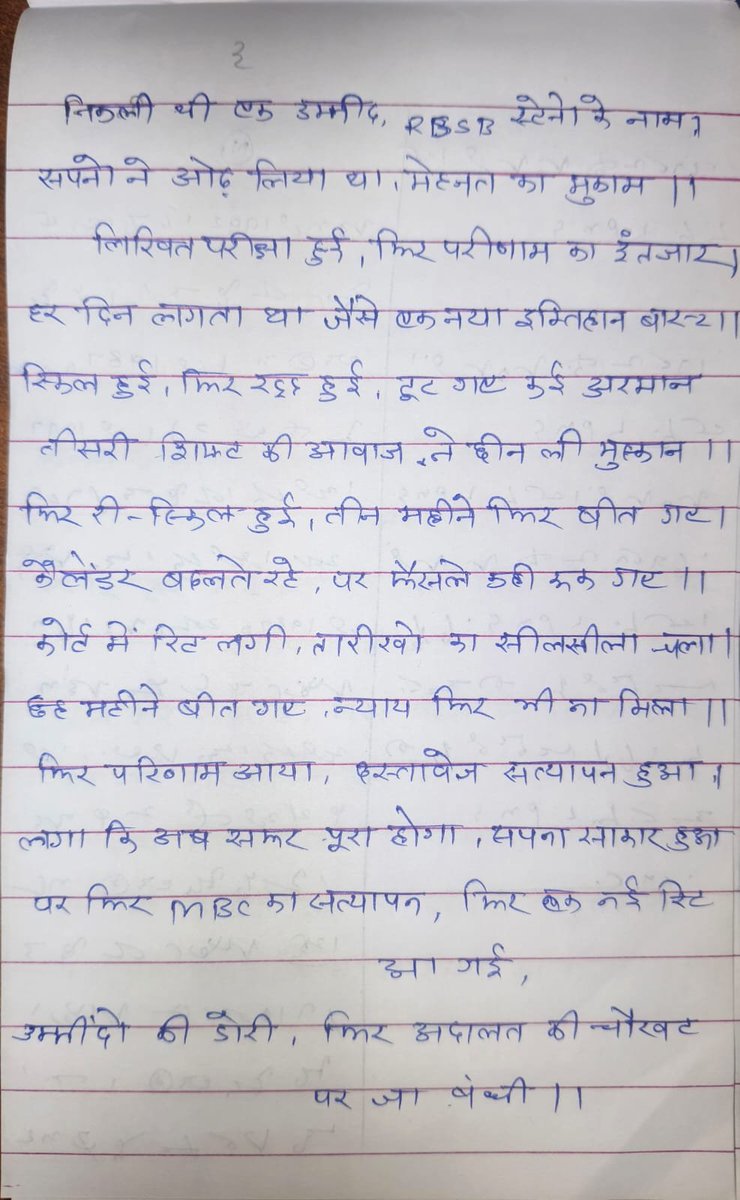 २
निकली थी एक उम्मीद, RBSB स्टेनो के नाम,।
सपनो ने ओढ़ लिया था, मेहनत का मुकाम ।।
लिखित परीक्षा हुई, फिर परीणाम का इंतजार,।
हर दिन लागता था जैसे एक नया इम्तिहान ।।
स्किल हुई, फिर रद्द हुई, टूट गए कई अरमान
तीसरी शिफ्ट की आवाज, ने छीन ली मुस्कान ।।
फिर री-स्किल हुई, तीन महीने फिर बीत गए।
कैलेंडर बदलते रहे, पर फैसले कही रूक गए ।।
कोर्ट में रिट लगी, तारीखो का सीलसीला चला।
छह महीने बीत गए, न्याय फिर भी ना मिला ।।
फिर परिणाम आया, दस्तावेज सत्यापन हुआ,।
लगा कि अब सफर पूरा होगा, सपना साकार हुआ
पर फिर MBC का सत्यापन, फिर एक नई रिट
आ गई,
उम्मींदो की डोरी, फिर अदालत की चौखट
पर जा बंधी ।।